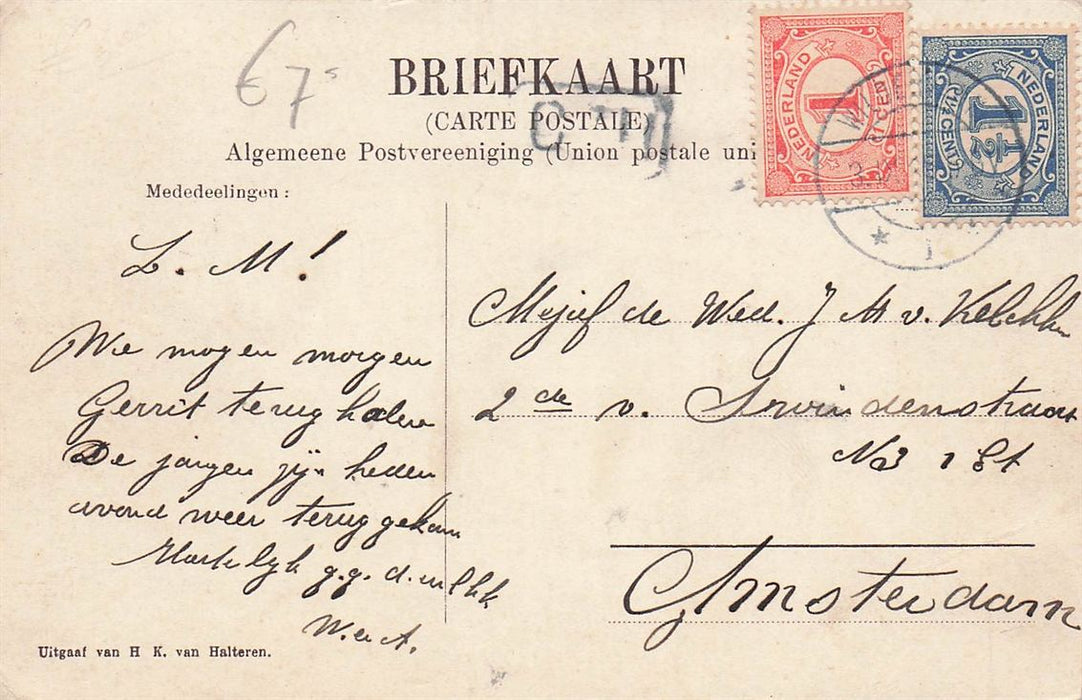 67
BRIEFKAART
(CARTE POSTALE)
Algemeene Postvereeniging (Union postale uni
NEDERLAND 1 CENT
NEDERLAND 1½ 1½ CENT
Mededeelingen:
L. M!
We mogen morgen
Gerrit terug halen
De jongen zijn heden
avond weer terug gekom
Hartelijk g.g. d.
W. en A.
Mejuf de Wed. J M v.
2de v. Swindenstraat
No 3 1 Et
Amsterdam
Uitgaaf van H K. van Halteren.